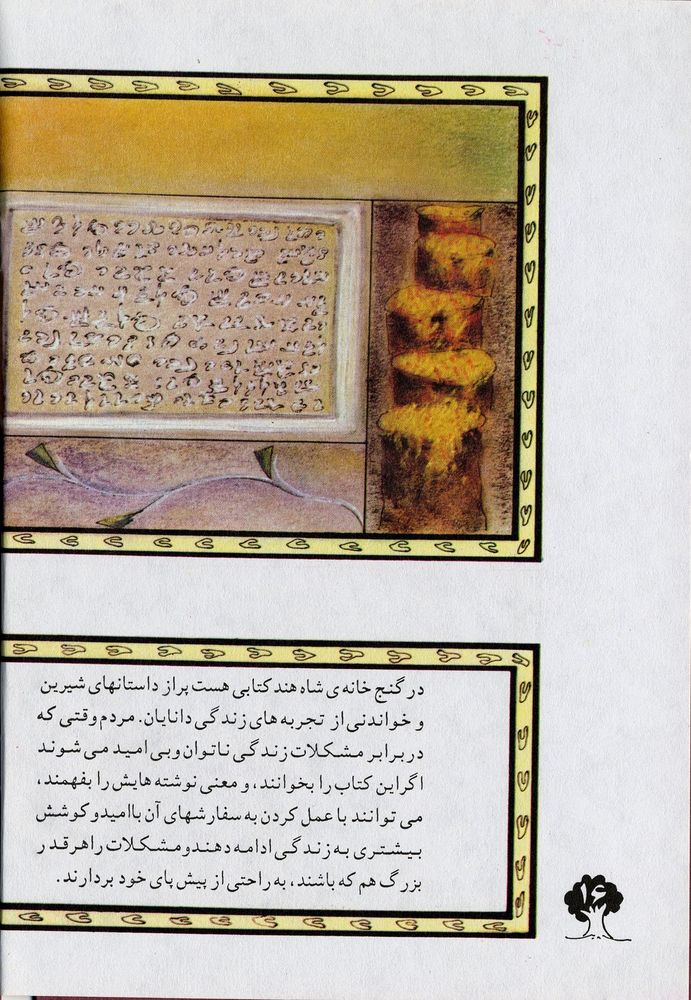 در گنج خانه‌ی شاه هند کتابی هست پر از داستانهای شیرین
و خواندنی از تجربه های زندگی دانایان. مردم وقتی که
در برابر مشکلات زندگی ناتوان و بی امید می شوند
اگر این کتاب را بخوانند، و معنی نوشته هایش را بفهمند،
می توانند با عمل کردن به سفارشهای آن با امید و کوشش
بیشتری به زندگی ادامه دهند و مشکلات را هر قدر
بزرگ هم که باشند، به راحتی از پیش پای خود بردارند.